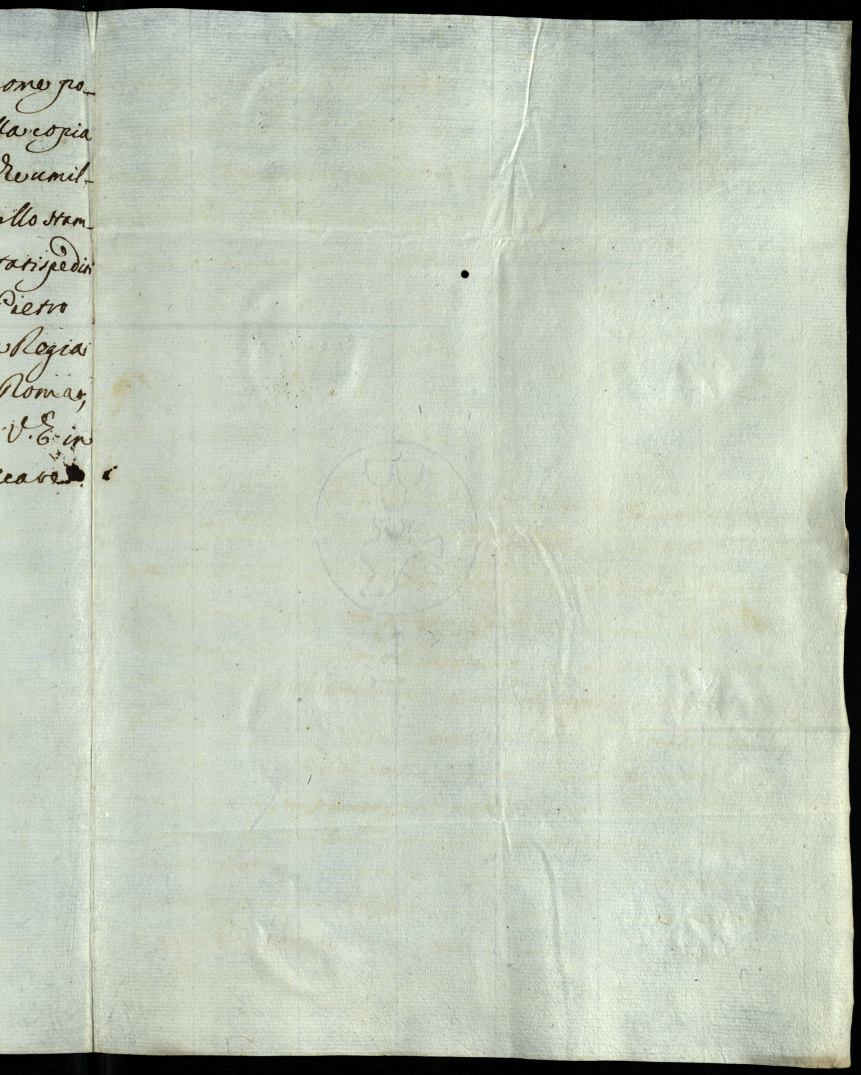 ome po-
lla copia
he umil-
ello stam-
tatispediti
Pietro
Regia
Roma,
V. E. in